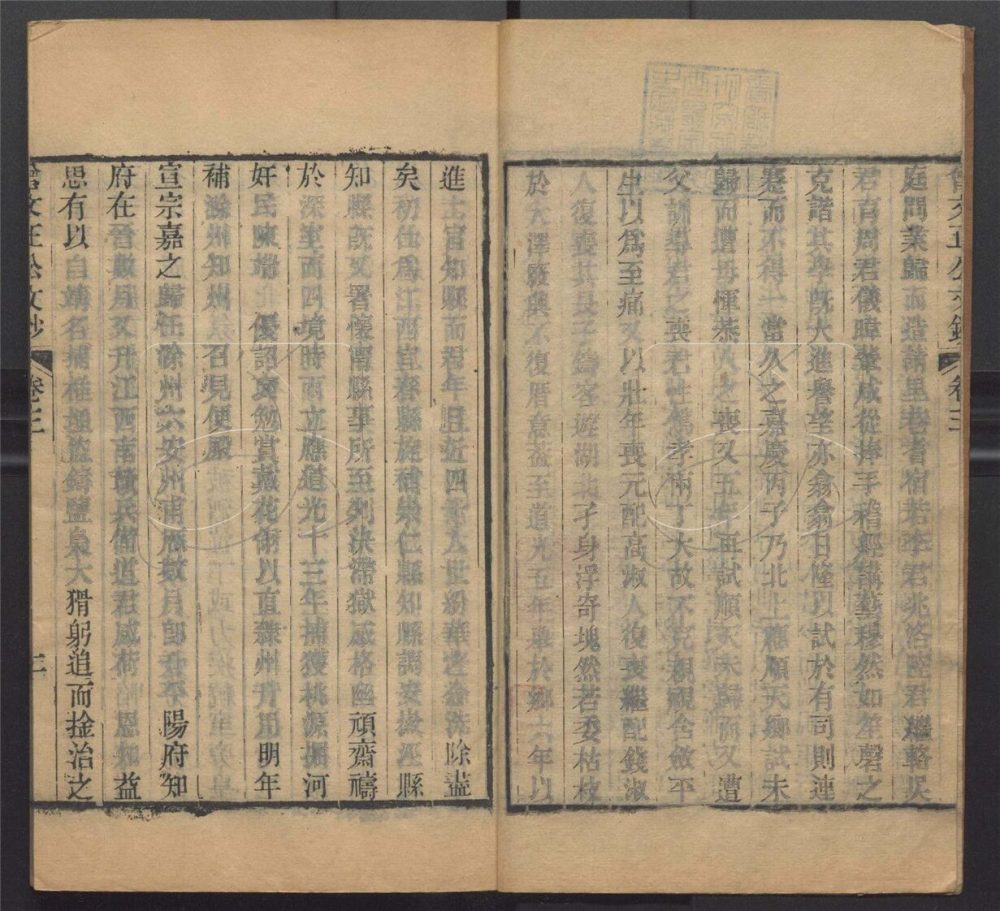 庭問業歸而造請里巷耆宿若李君兆洛陸君繼輅吳
君育周君儀暐輩咸從捧手稽經講藝穆然如笙磬之
克諧其學旣大進譽望亦翕翕日隆以試於有司則連
蹇而不得一當久之嘉慶丙子乃北上應順天鄉試未
歸而遭母惲恭人之喪又五年再試順天未歸而又遭
父訓導君之喪君性篤孝兩丁大故不克親視含斂平
生以爲至痛又以壯年喪元配高淑人復喪繼配錢淑
人復喪其長子爲客遊湖北孑身浮寄塊然若委枯枝
於大澤廢與不復厝意蓋至道光五年舉於鄉六年以
進士官知縣而君年且近四十人世紛華之念洗除盡
矣初仕爲江西宜春縣旋補崇仁縣知縣調安
知縣旣又署懷甯縣事所至列決滯獄感格幽頑齋禱
於深室而四境時雨立應道光十三年捕獲桃源掘河
奸民陳端 優詔褒勉賞戴花翎以直隸州升用明年
補滁州知州 召見便殿
宣宗嘉之歸任滁州六安州甫歷數月郎升平陽府知
府在晉數月又升江西南贛兵備道君感荷 恩知益
思有以自靖名捕 盜鑄鹽梟大猾躬追而捡治之
曾文正公文鈔 卷三 二